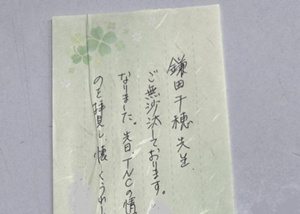 鎌田千穂先生
ご無沙汰しております。
なりました。先日TNCの情
のを拝見し、懐くうれし